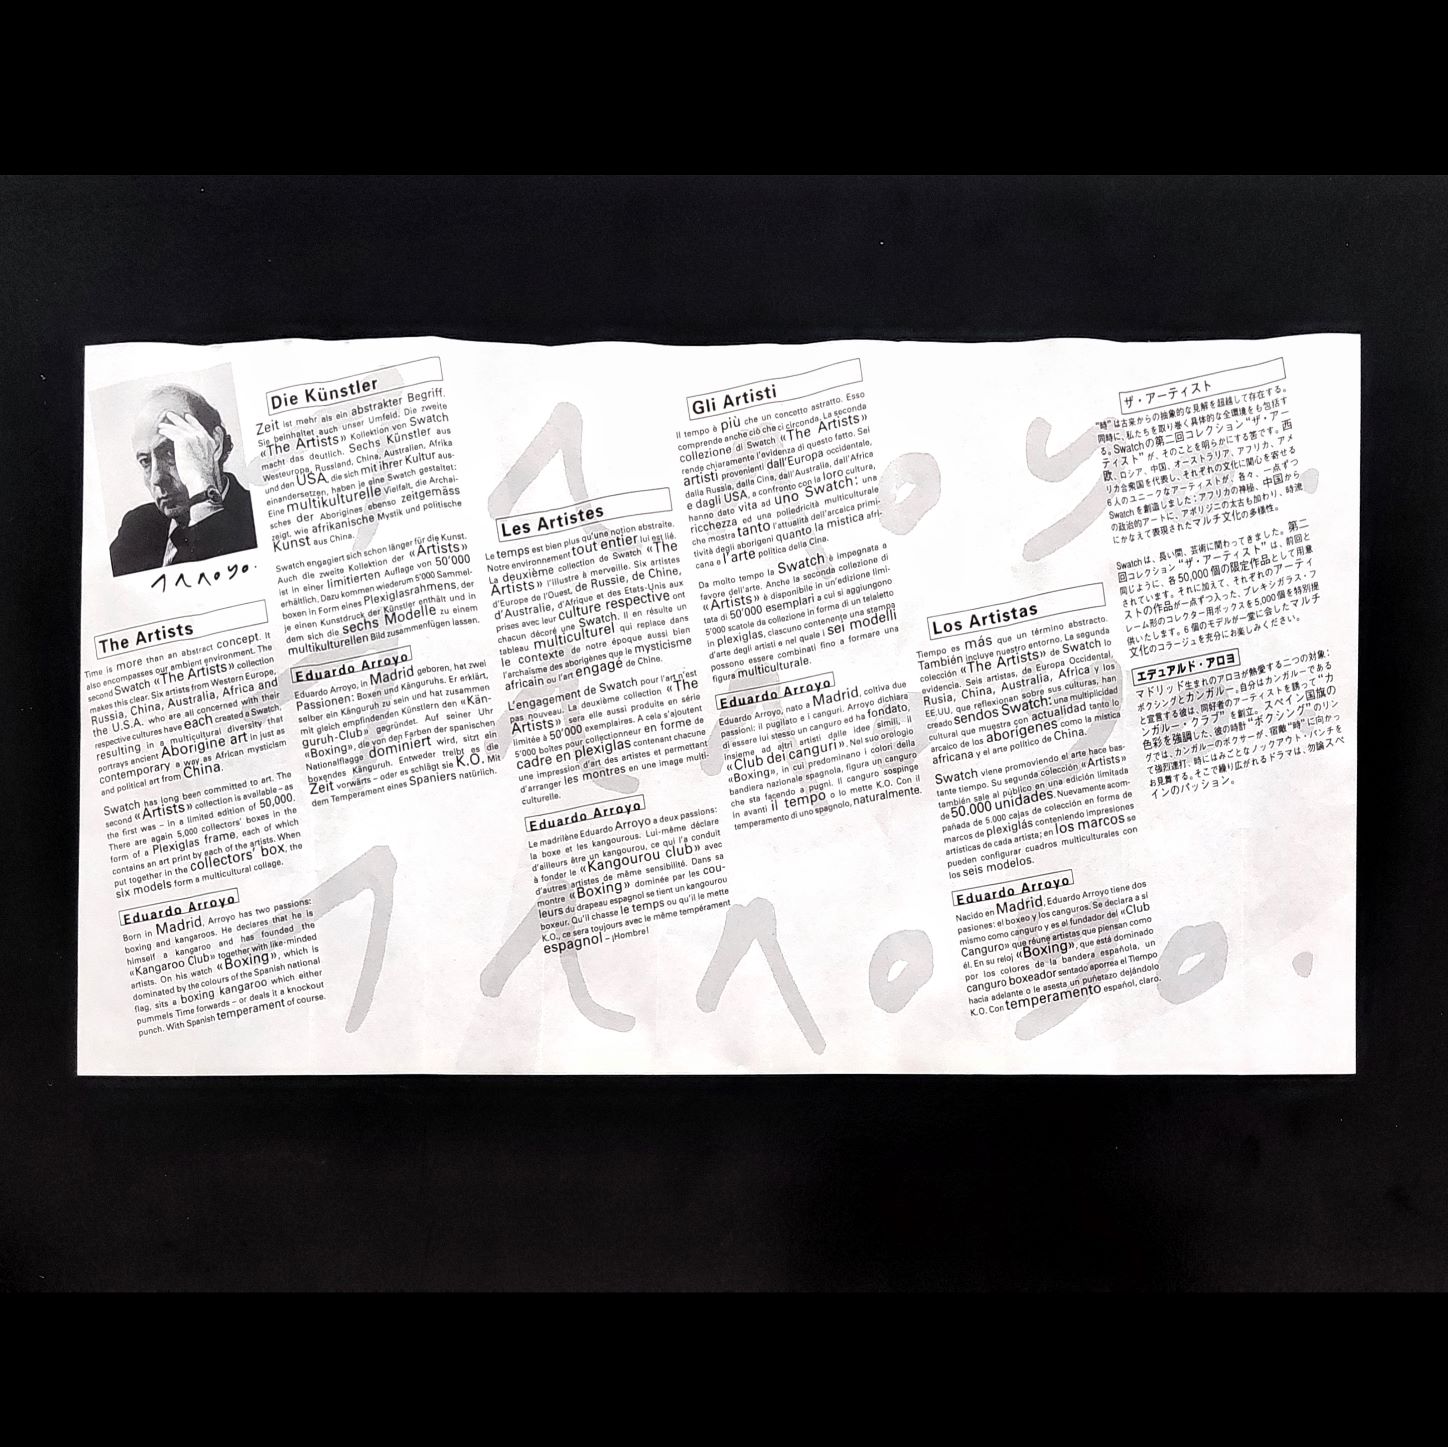 Arroyo.
The Artists
Time is more than an abstract concept. It
also encompasses our ambient environment. The
second Swatch «The Artists» collection
makes this clear. Six artists from Western Europe,
Russia, China, Australia, Africa and
the U.S.A. who are all concerned with their
respective cultures have each created a Swatch,
resulting in a multicultural diversity that
portrays ancient Aborigine art in just as
contemporary a way as African mysticism
and political art from China.
Swatch has long been committed to art. The
second «Artists» collection is available – as
the first was – in a limited edition of 50,000.
There are again 5,000 collectors' boxes in the
form of a Plexiglas frame, each of which
contains an art print by each of the artists. When
put together in the collectors' box, the
six models form a multicultural collage.
Eduardo Arroyo
Born in Madrid, Arroyo has two passions:
boxing and kangaroos. He declares that he is
himself a kangaroo and has founded the
«Kangaroo Club» together with like-minded
artists. On his watch «Boxing», which is
dominated by the colours of the Spanish national
flag, sits a boxing kangaroo which either
pummels Time forwards – or deals it a knockout
punch. With Spanish temperament of course.
Die Künstler
Zeit ist mehr als ein abstrakter Begriff.
Sie beinhaltet auch unser Umfeld. Die zweite
«The Artists» Kollektion von Swatch
macht das deutlich. Sechs Künstler aus
Westeuropa, Russland, China, Australien, Afrika
und den USA, die sich mit ihrer Kultur aus-
einandersetzen, haben je eine Swatch gestaltet:
Eine multikulturelle Vielfalt, die Archai-
sches der Aborigines ebenso zeitgemäss
zeigt, wie afrikanische Mystik und politische
Kunst aus China.
Swatch engagiert sich schon länger für die Kunst.
Auch die zweite Kollektion der «Artists»
ist in einer limitierten Auflage von 50'000
erhältlich. Dazu kommen wiederum 5'000 Sammel-
boxen in Form eines Plexiglasrahmens, der
je einen Kunstdruck der Künstler enthält und in
dem sich die sechs Modelle zu einem
multikulturellen Bild zusammenfügen lassen.
Eduardo Arroyo
Eduardo Arroyo, in Madrid geboren, hat zwei
Passionen: Boxen und Känguruhs. Er erklärt,
selber ein Känguruh zu sein und hat zusammen
mit gleich empfindenden Künstlern den «Kän-
guruh-Club» gegründet. Auf seiner Uhr
«Boxing», die von den Farben der spanischen
Nationalflagge dominiert wird, sitzt ein
boxendes Känguruh. Entweder treibt es die
Zeit vorwärts – oder es schlägt sie K.O. Mit
dem Temperament eines Spaniers natürlich.
Les Artistes
Le temps est bien plus qu'une notion abstraite.
Notre environnement tout entier lui est lié.
La deuxième collection de Swatch «The
Artists» l'illustre à merveille. Six artistes
d'Europe de l'Ouest, de Russie, de Chine,
d'Australie, d'Afrique et des Etats-Unis aux
prises avec leur culture respective ont
chacun décoré une Swatch. Il en résulte un
tableau multiculturel qui replace dans
le contexte de notre époque aussi bien
l'archaïsme des aborigènes que le mysticisme
africain ou l'art engagé de Chine.
L'engagement de Swatch pour l'art n'est
pas nouveau. La deuxième collection «The
Artists» sera elle aussi produite en série
limitée à 50'000 exemplaires. A cela s'ajoutent
5'000 boîtes pour collectionneur en forme de
cadre en plexiglas contenant chacune
une impression d'art des artistes et permettant
d'arranger les montres en une image multi-
culturelle.
Eduardo Arroyo
Le madrilène Eduardo Arroyo a deux passions:
la boxe et les kangourous. Lui-même déclare
d'ailleurs être un kangourou, ce qui l'a conduit
à fonder le «Kangourou club» avec
d'autres artistes de même sensibilité. Dans sa
montre «Boxing» dominée par les cou-
leurs du drapeau espagnol se tient un kangourou
boxeur. Qu'il chasse le temps ou qu'il le mette
K.O., ce sera toujours avec le même tempérament
espagnol – ¡Hombre!
Gli Artisti
Il tempo è più che un concetto astratto. Esso
comprende anche ciò che ci circonda. La seconda
collezione di Swatch «The Artists»
rende chiaramente l'evidenza di questo fatto. Sei
artisti provenienti dall'Europa occidentale,
dalla Russia, dalla Cina, dall'Australia, dall'Africa
e dagli USA, a confronto con la loro cultura,
hanno dato vita ad uno Swatch: una
ricchezza ed una poliedricità multiculturale
che mostra tanto l'attualità dell'arcaica primi-
tività degli aborigeni quanto la mistica afri-
cana e l'arte politica della Cina.
Da molto tempo la Swatch è impegnata a
favore dell'arte. Anche la seconda collezione di
«Artists» è disponibile in un'edizione limi-
tata di 50'000 esemplari a cui si aggiungono
5'000 scatole da collezione in forma di un telaietto
in plexiglas, ciascuno contenente una stampa
d'arte degli artisti e nel quale i sei modelli
possono essere combinati fino a formare una
figura multiculturale.
Eduardo Arroyo
Eduardo Arroyo, nato a Madrid, coltiva due
passioni: il pugilato e i canguri. Arroyo dichiara
di essere lui stesso un canguro ed ha fondato,
insieme ad altri artisti dalle idee simili, il
«Club dei canguri». Nel suo orologio
«Boxing», in cui predominano i colori della
bandiera nazionale spagnola, figura un canguro
che sta facendo a pugni. Il canguro sospinge
in avanti il tempo o lo mette K.O. Con il
temperamento di uno spagnolo, naturalmente.
Los Artistas
Tiempo es más que un término abstracto.
También incluye nuestro entorno. La segunda
colección «The Artists» de Swatch lo
evidencia. Seis artistas, de Europa Occidental,
Rusia, China, Australia, Africa y los
EE.UU. que reflexionan sobre sus culturas, han
creado sendos Swatch: una multiplicidad
cultural que muestra con actualidad tanto lo
arcaico de los aborígenes como la mística
africana y el arte político de China.
Swatch viene promoviendo el arte hace bas-
tante tiempo. Su segunda colección «Artists»
también sale al público en una edición limitada
de 50.000 unidades. Nuevamente acom-
pañada de 5.000 cajas de colección en forma de
marcos de plexiglás conteniendo impresiones
artísticas de cada artista; en los marcos se
pueden configurar cuadros multiculturales con
los seis modelos.
Eduardo Arroyo
Nacido en Madrid, Eduardo Arroyo tiene dos
pasiones: el boxeo y los canguros. Se declara a sí
mismo como canguro y es el fundador del «Club
Canguro» que réune artistas que piensan como
él. En su reloj «Boxing», que está dominado
por los colores de la bandera española, un
canguro boxeador sentado aporrea el Tiempo
hacia adelante o le asesta un puñetazo dejándolo
K.O. Con temperamento español, claro.
ザ・アーティスト
"時"は古来からの抽象的な見解を超越して存在する。
同時に、私たちを取り巻く具体的な全環境をも包括す
る。Swatchの第二回コレクション"ザ・アー
ティスト"が、そのことを明らかにする筈です。西
欧、ロシア、中国、オーストラリア、アフリカ、アメ
リカ合衆国を代表し、それぞれの文化に関心を寄せる
6人のユニークなアーティストが、各々、一点ずつ
Swatchを創造しました:アフリカの神秘、中国から
の政治的アートに、アボリジニの太古も加わり、時流
にかなえて表現されたマルチ文化の多様性。
Swatchは、長い間、芸術に関わってきました。第二
回コレクション"ザ・アーティスト"は、前回と
同じように、各50,000個の限定作品として用意
されています。それに加えて、それぞれのアーティ
ストの作品が一点ずつ入った、プレキシガラス・フ
レーム形のコレクター用ボックスを5,000個を特別提
供いたします。6個のモデルが一堂に会したマルチ
文化のコラージュを充分にお楽しみください。
エデュアルド・アロヨ
マドリッド生まれのアロヨが熱愛する二つの対象:
ボクシングとカンガルー。自分はカンガルーである
と宣言する彼は、同好者のアーティストを誘って"カ
ンガルー・クラブ"を創立。スペイン国旗の
色彩を強調した、彼の時計"ボクシング"のリン
グでは、カンガルーのボクサーが、宿敵"時"に向かっ
て強烈連打、時にはみごとなノックアウト・パンチを
お見舞する。そこで繰り広げれるドラマは、勿論スペ
インのパッション。